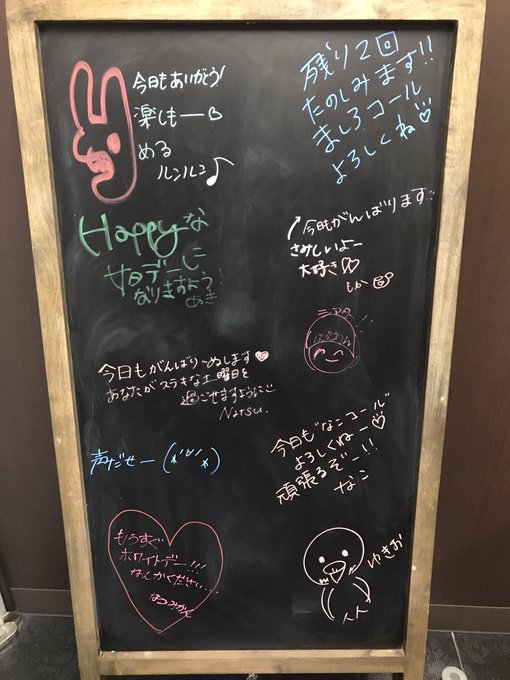 今日もありがとう!
楽しもー♡
める
ルンルン♪
残り2回
たのしみます!!
ましろコール
よろしくね♡
Happyな
なりますよう
あき
今日もがんばります!!
さみしいよー
大好き♡
もか
シアタ
今日もがんばり〜ぬします♥
あなたがステキな土曜日を
過ごせますように
Natsu.
声だせー(*'▽'*)
今日も"なこコール"
よろしくねー♡
頑張るぞー!!
なこ
もうすぐ
ホワイトデー!!!
なんかください...
なつみかん
ゆきお